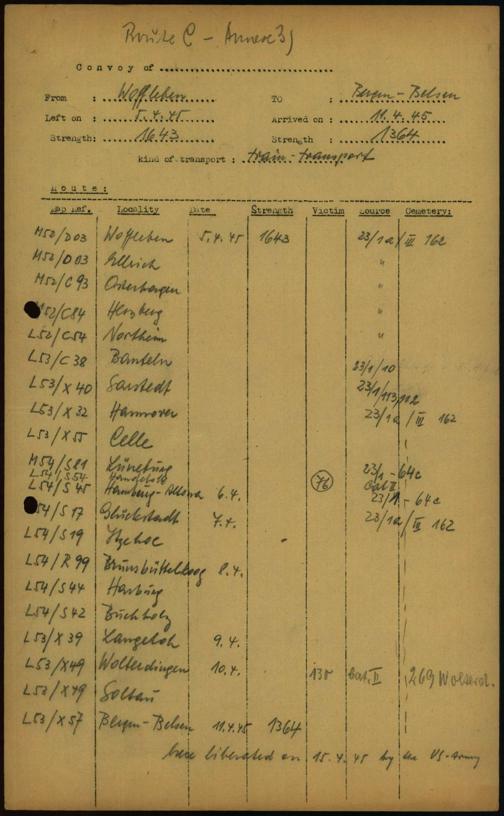 Route C - Annexe 3)
Convoy of ..............................
From : Woffleben TO : Bergen-Belsen
Left on : 5.4.45 Arrived on : 11.4.45
Strength: 1643 Strength : 1364
kind of transport : train-transport
Route:
Map Ref. Locality Date Strength Victim Source Cemetery:
M52/D03 Woffleben 5.4.45 1643 23/1a/III 162
M52/D03 Ellrich "
M52/C93 Osterhagen "
M52/C84 Herzberg "
L52/C54 Northeim "
L53/C38 Banteln 23/1/10
L53/X40 Sarstedt 23/1/113,112
L53/X32 Hannover 23/1a/III 162
L53/X55 Celle
M54/S81 Lüneburg 23/1-64c
L54/S54 Cat II
L54/S45 Hamburg-Altona 6.4. 76 23/1.-64c
54/S17 Glückstadt 7.4. 23/1a/III 162
L54/S19 Itzehoe
L54/R99 Brunsbüttelkoog 8.4.
L54/S44 Harburg
L54/S42 Buchholz
L53/X39 Langeloh 9.4.
L53/X49 Wolterdingen 10.4. 130 Cat. II 269 Wolterd.
L53/X49 Soltau
L53/X57 Bergen-Belsen 11.4.45 1364
were liberated on 15.4.45 by the US-Army